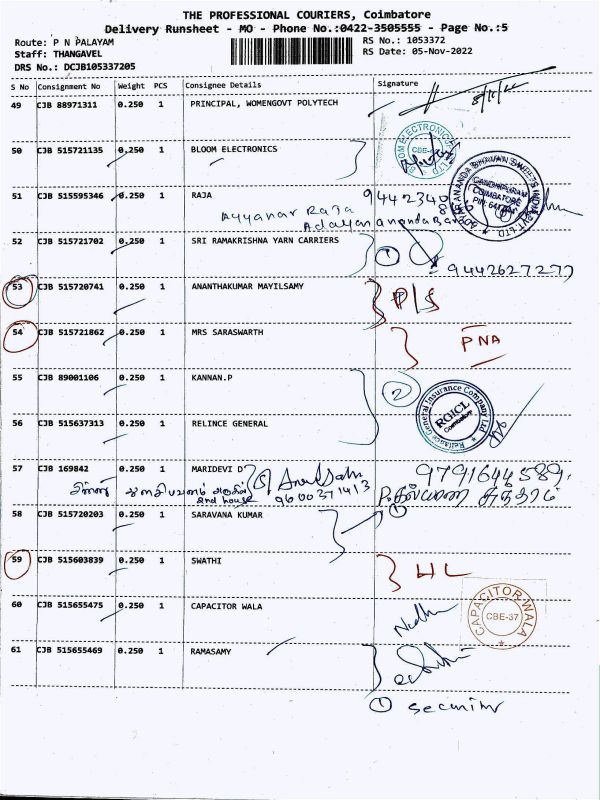 THE PROFESSIONAL COURIERS, Coimbatore
Delivery Runsheet - MO - Phone No.:0422-3505555 - Page No.:5
Route: P N PALAYAM
Staff: THANGAVEL
DRS No.: DCJB105337205
RS No.: 1053372
RS Date: 05-Nov-2022
S No Consignment No Weight PCS Consignee Details Signature
49 CJB 88971311 0.250 1 PRINCIPAL, WOMENGOVT POLYTECH
50 CJB 515721135 0.250 1 BLOOM ELECTRONICS
BLOOM ELECTRONICS
51 CJB 515595346 0.250 1 RAJA
Ayyanar Raja
ADYAR ANANDA BHAVAN SWEETS INDIA PVT LTD
GANDHIPURAM
COIMBATORE
52 CJB 515721702 0.250 1 SRI RAMAKRISHNA YARN CARRIERS 1
9442627277
53 CJB 515720741 0.250 1 ANANTHAKUMAR MAYILSAMY P/S
54 CJB 515721862 0.250 1 MRS SARASWARTH PNA
55 CJB 89001106 0.250 1 KANNAN.P 2
56 CJB 515637313 0.250 1 RELINCE GENERAL
Reliance General Insurance Company Ltd
RGICL
Coimbatore
57 CJB 169842 0.250 1 MARIDEVI D 9791644589
2nd house 9600371413
58 CJB 515720203 0.250 1 SARAVANA KUMAR 1
59 CJB 515603839 0.250 1 SWATHI HL
60 CJB 515655475 0.250 1 CAPACITOR WALA
CAPACITOR WALA
CBE-37
61 CJB 515655469 0.250 1 RAMASAMY
1